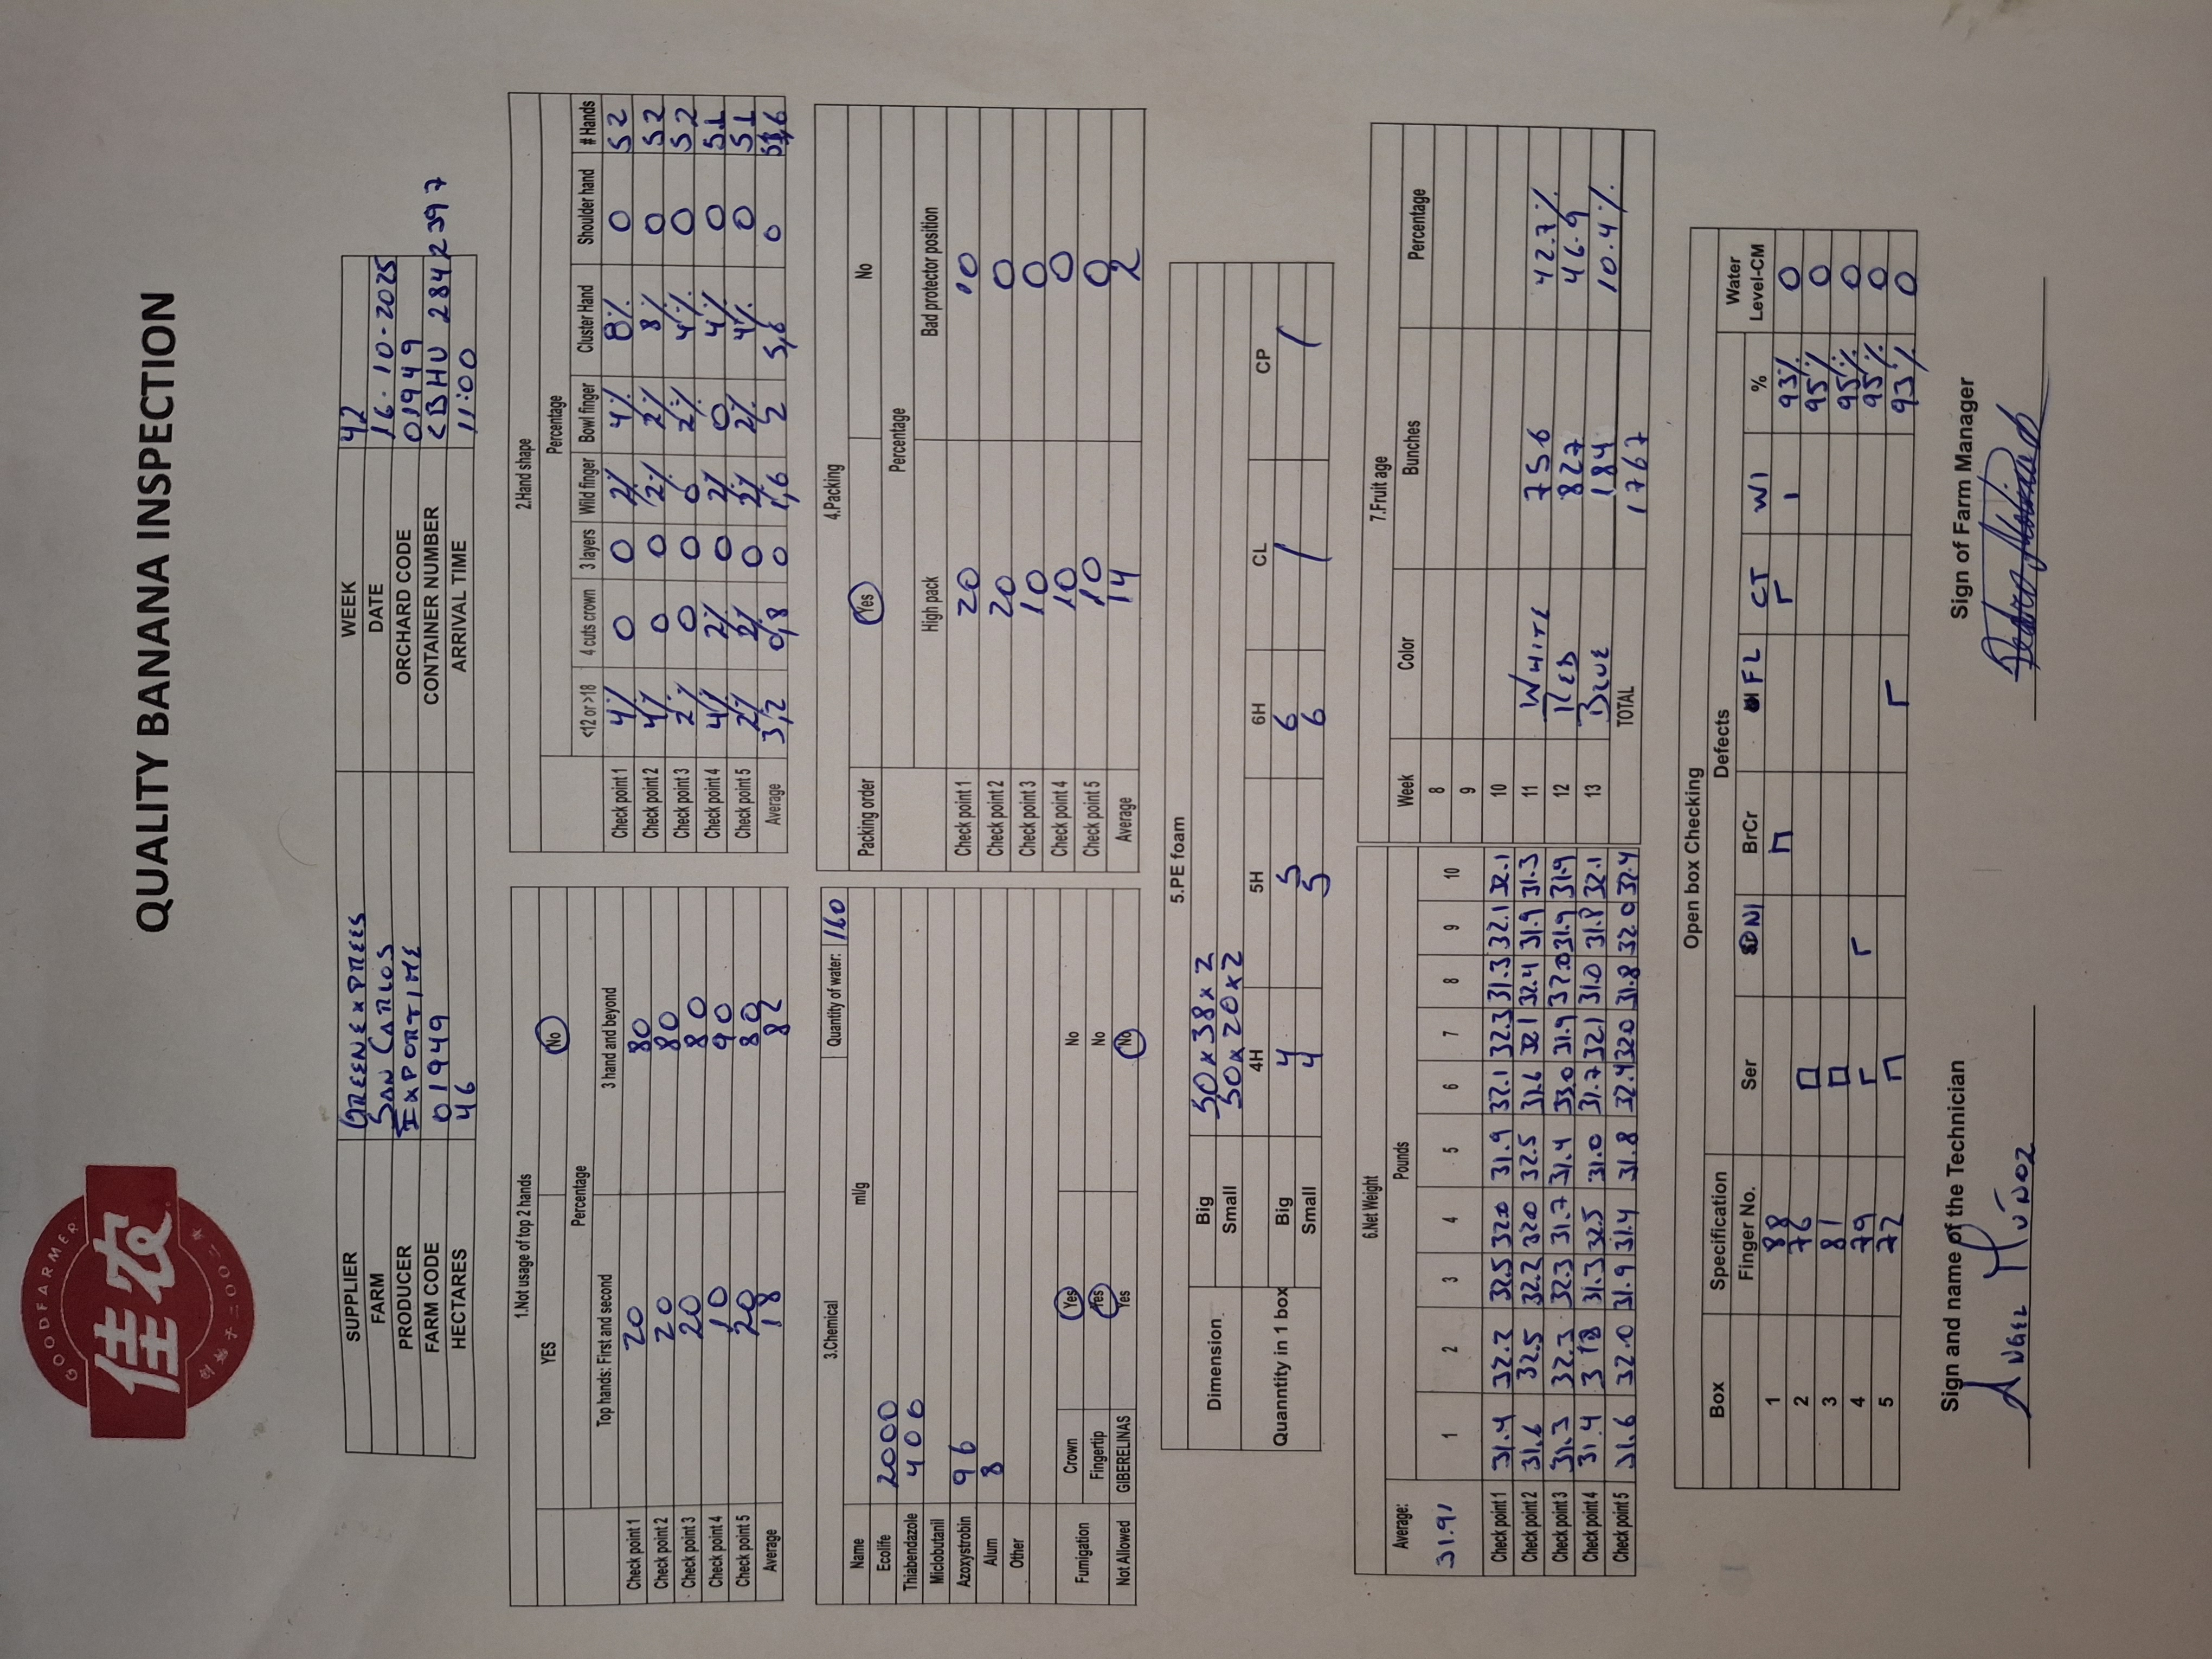 GOODFARMER
佳农
创始于二〇〇二年
QUALITY BANANA INSPECTION
SUPPLIER GREENEXPREES WEEK 42
FARM SAN CARLOS DATE 16-10-2025
PRODUCER EXPORTIME ORCHARD CODE 01949
FARM CODE 01949 CONTAINER NUMBER CBHU 2842397
HECTARES 46 ARRIVAL TIME 11:00
1.Not usage of top 2 hands
YES No
Percentage
Top hands: First and second 3 hand and beyond
Check point 1 20 80
Check point 2 20 80
Check point 3 20 80
Check point 4 10 90
Check point 5 20 80
Average 18 82
2.Hand shape
Percentage
<12 or >18 4 cuts crown 3 layers Wild finger Bowl finger Cluster Hand Shoulder hand # Hands
Check point 1 4% 0 0 2% 4% 8% 0 52
Check point 2 4% 0 0 2% 2% 8% 0 52
Check point 3 2% 0 0 0 2% 4% 0 52
Check point 4 4% 2% 0 2% 0 4% 0 51
Check point 5 2% 2% 0 2% 2% 4% 0 51
Average 3,2 0,8 0 1,6 2 5,6 0 51,6
3.Chemical Quantity of water: 160
Name ml/g
Ecolife 2000
Thiabendazole 400
Miclobutanil
Azoxystrobin 96
Alum 8
Other
Fumigation Crown Yes No
Fingertip Yes No
Not Allowed GIBERELINAS Yes No
4.Packing
Packing order Yes No
Percentage
High pack Bad protector position
Check point 1 20 10
Check point 2 20 0
Check point 3 10 0
Check point 4 10 0
Check point 5 10 0
Average 14 2
5.PE foam
Dimension Big 50x38x2
Small 50x20x2
Quanntity in 1 box 4H 5H 6H CL CP
Big 4 5 6 /
Small 4 5 6 /
6.Net Weight
Average: Pounds
31.91 1 2 3 4 5 6 7 8 9 10
Check point 1 31.4 32.2 32.5 32.0 31.9 32.1 32.3 31.3 32.1 32.1
Check point 2 31.6 32.5 32.2 32.0 32.5 31.6 32.1 32.4 31.9 31.3
Check point 3 31.3 32.3 32.3 31.7 31.4 33.0 31.9 32.0 31.9 31.9
Check point 4 31.4 318 31.3 32.5 31.0 31.7 32.1 31.0 31.8 32.1
Check point 5 31.6 32.0 31.9 31.4 31.8 32.4 32.0 31.8 32.0 32.4
7.Fruit age
Week Color Bunches Percentage
8
9
10
11 WHITE 756 42.7%
12 RED 827 46.9
13 BLUE 184 10.4%
TOTAL 1767
Open box Checking
Box Specification Defects Water
Finger No. Ser NI BrCr FL CT WI % Level-CM
1 88 93% 0
2 76 95% 0
3 81 95% 0
4 79 95% 0
5 72 93% 0
Sign and name of the Technician Sign of Farm Manager
ANGEL MUÑOZ